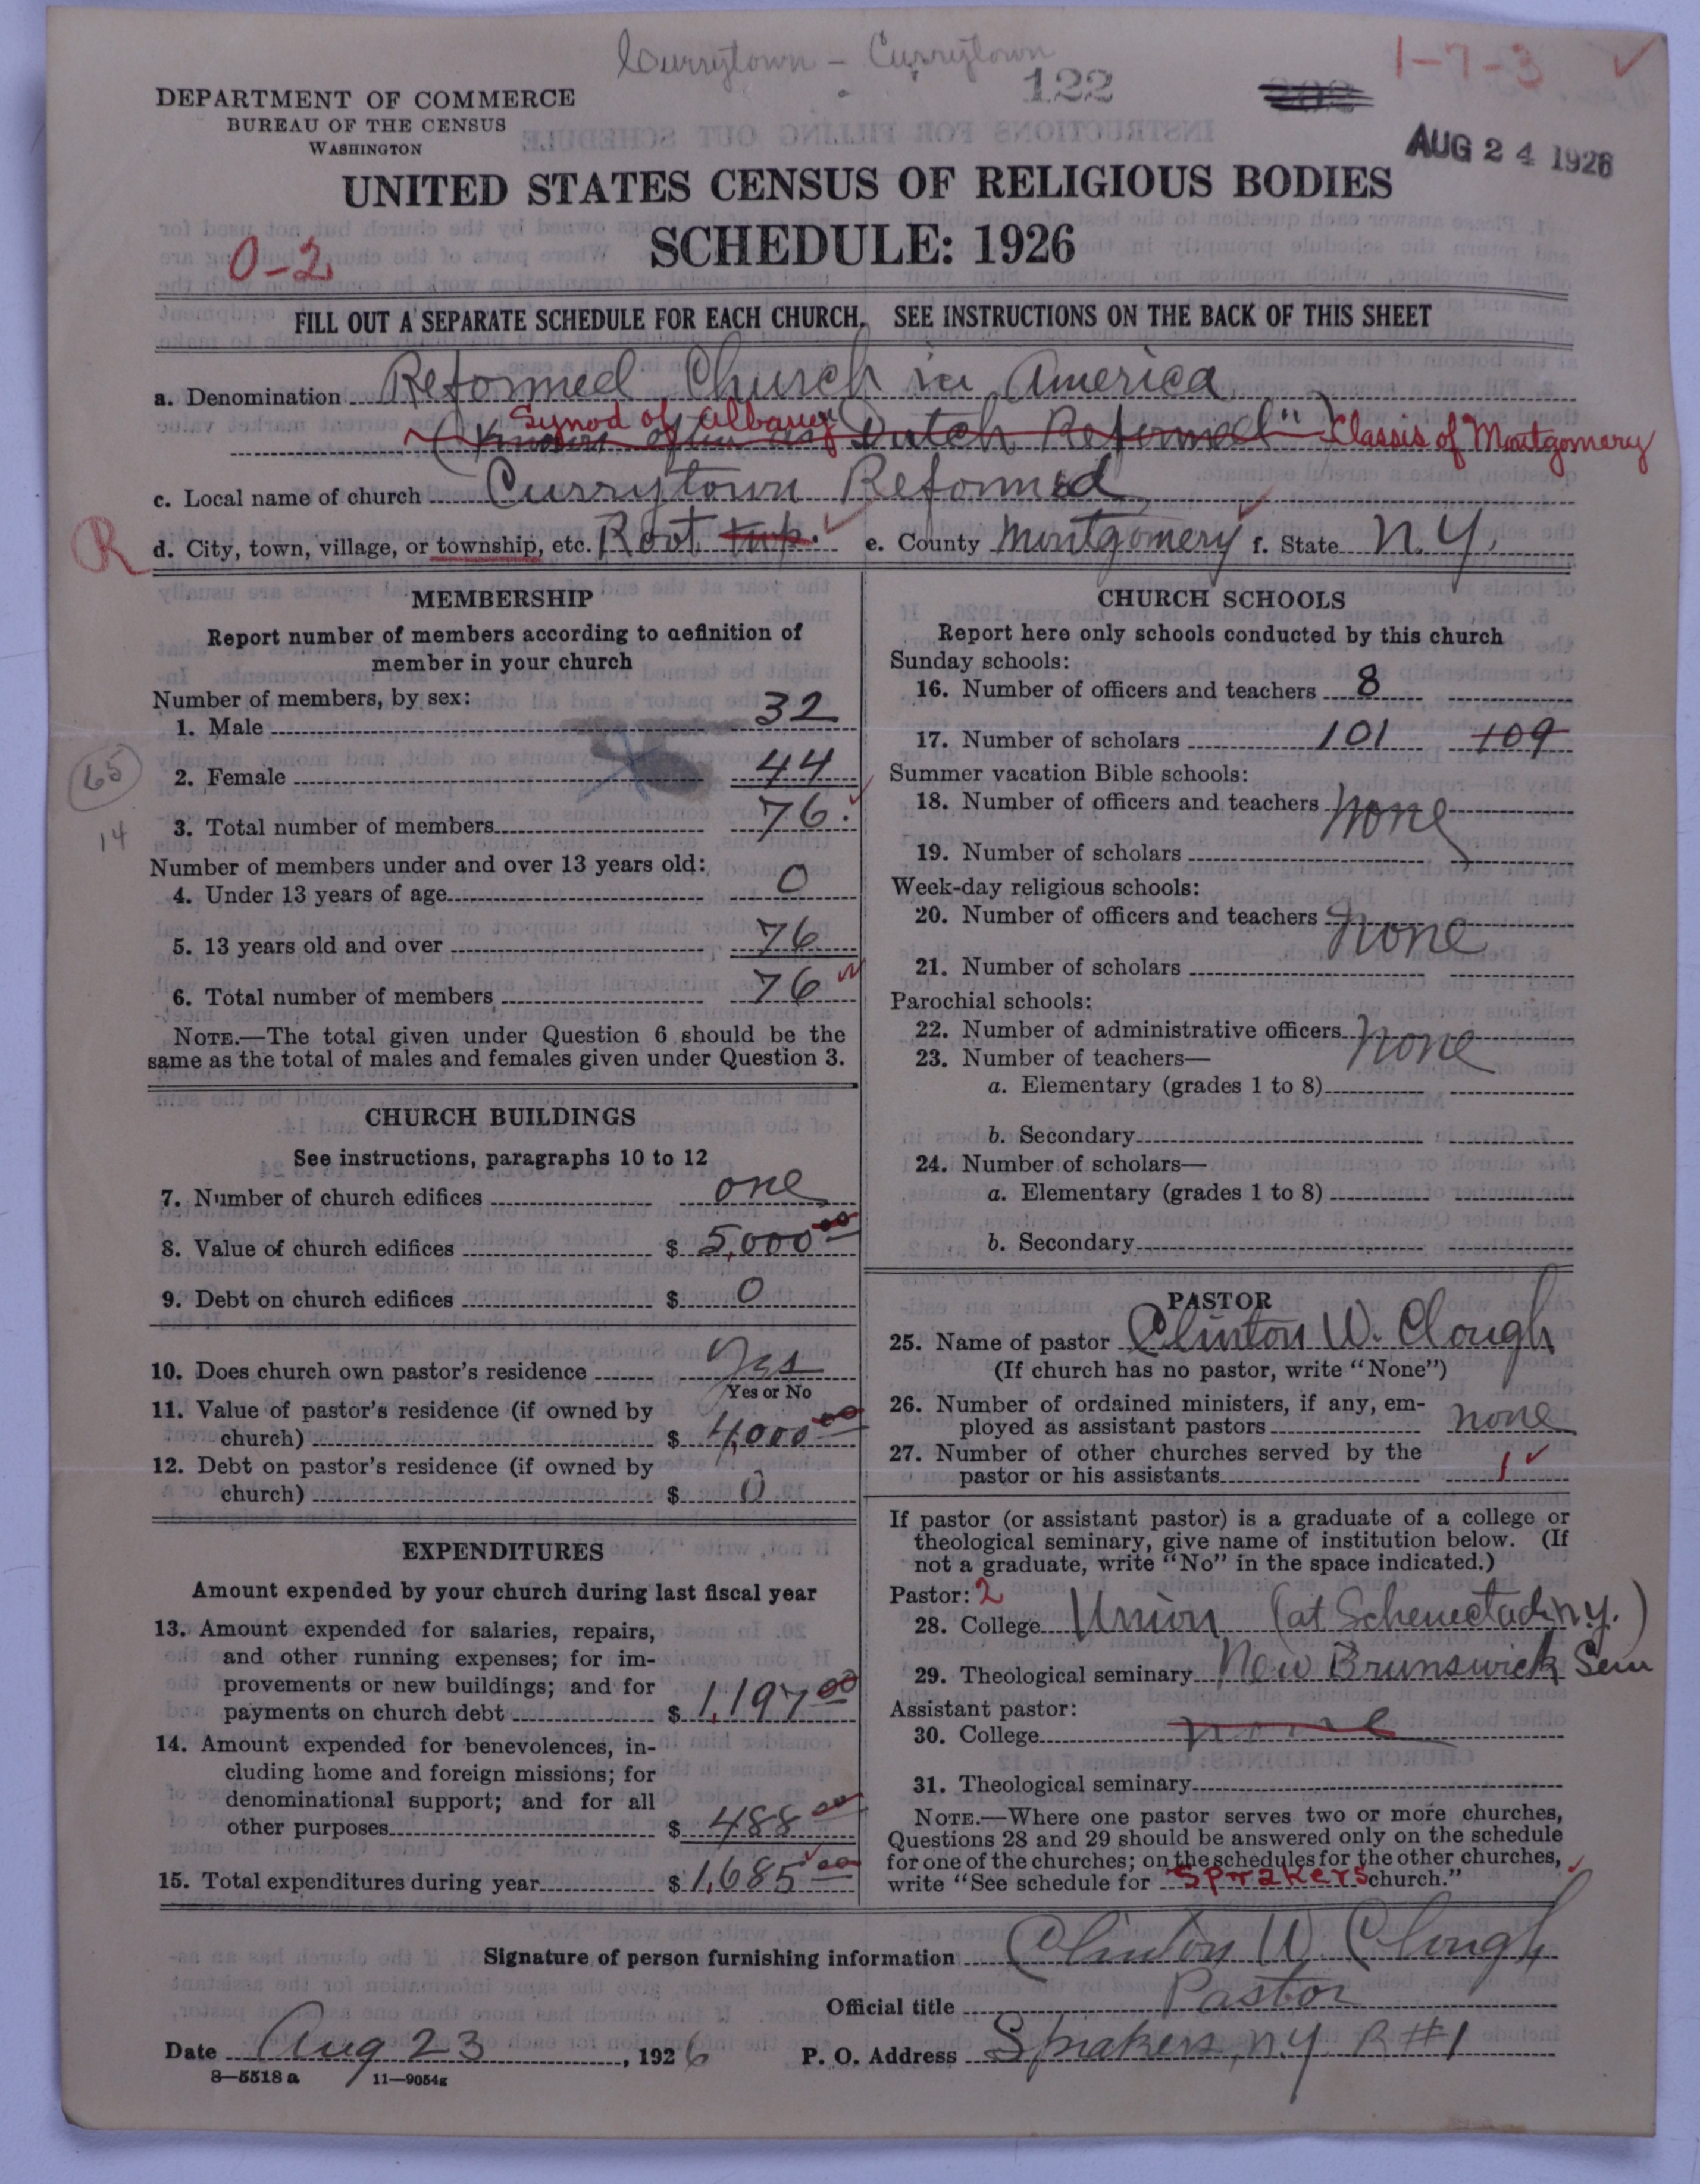 Currytown - Currytown
122
1-7-3
DEPARTMENT OF COMMERCE
BUREAU OF THE CENSUS
WASHINGTON
AUG 24 1926
UNITED STATES CENSUS OF RELIGIOUS BODIES
SCHEDULE: 1926
0-2
FILL OUT A SEPARATE SCHEDULE FOR EACH CHURCH. SEE INSTRUCTIONS ON THE BACK OF THIS SHEET
a. Denomination Reformed Church in America
Synod of Albany
(Known often as "Dutch Reformed") Classis of Montgomery
c. Local name of church Currytown Reformed
R d. City, town, village, or township, etc. Root twp. e. County Montgomery f. State N.Y.
MEMBERSHIP
Report number of members according to definition of
member in your church
Number of members, by sex:
1. Male 32
65
2. Female 44
14
3. Total number of members 76.
Number of members under and over 13 years old:
4. Under 13 years of age 0
5. 13 years old and over 76
6. Total number of members 76
NOTE.—The total given under Question 6 should be the
same as the total of males and females given under Question 3.
CHURCH BUILDINGS
See instructions, paragraphs 10 to 12
7. Number of church edifices one
8. Value of church edifices $ 5,000 00
9. Debt on church edifices $ 0
10. Does church own pastor's residence Yes
Yes or No
11. Value of pastor's residence (if owned by
church) $ 4,000 00
12. Debt on pastor's residence (if owned by
church) $ 0
EXPENDITURES
Amount expended by your church during last fiscal year
13. Amount expended for salaries, repairs,
and other running expenses; for im-
provements or new buildings; and for
payments on church debt $ 1,197 00
14. Amount expended for benevolences, in-
cluding home and foreign missions; for
denominational support; and for all
other purposes $ 488 00
15. Total expenditures during year $ 1,685 00
CHURCH SCHOOLS
Report here only schools conducted by this church
Sunday schools:
16. Number of officers and teachers 8
17. Number of scholars 101 109
Summer vacation Bible schools:
18. Number of officers and teachers none
19. Number of scholars
Week-day religious schools:
20. Number of officers and teachers none
21. Number of scholars
Parochial schools:
22. Number of administrative officers none
23. Number of teachers—
a. Elementary (grades 1 to 8)
b. Secondary
24. Number of scholars—
a. Elementary (grades 1 to 8)
b. Secondary
PASTOR
25. Name of pastor Clinton W. Clough
(If church has no pastor, write "None")
26. Number of ordained ministers, if any, em-
ployed as assistant pastors none
27. Number of other churches served by the
pastor or his assistants 1
If pastor (or assistant pastor) is a graduate of a college or
theological seminary, give name of institution below. (If
not a graduate, write "No" in the space indicated.)
Pastor: 2
28. College Union (at Schenectady N.Y.)
29. Theological seminary New Brunswick Sem
Assistant pastor:
30. College none
31. Theological seminary
NOTE.—Where one pastor serves two or more churches,
Questions 28 and 29 should be answered only on the schedule
for one of the churches; on the schedules for the other churches,
write "See schedule for Sprakers church."
Signature of person furnishing information Clinton W. Clough
Official title Pastor
Date Aug 23, 1926 P. O. Address Sprakers, N.Y. R #1
8—5518 a 11—9054g